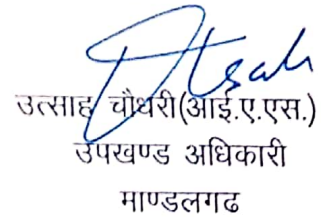 Utsah
उत्साह चौधरी(आई.ए.एस.)
उपखण्ड अधिकारी
माण्डलगढ